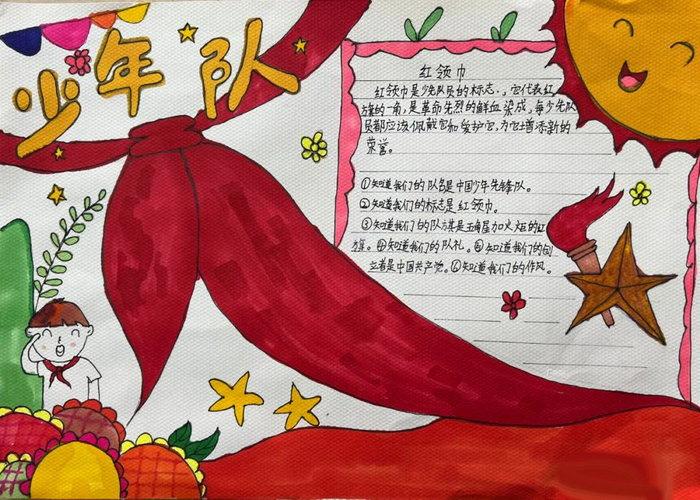 少年队
红领巾
红领巾是少先队员的标志.，它代表红
旗的一角，是革命先烈的鲜血染成，每个先队
员都应该佩戴它和爱护它，为它增添新的
荣誉。
①知道我们的队名是中国少年先锋队。
②知道我们的标志是红领巾。
③知道我们的队旗是五角星加火炬的红
旗。④知道我们的队礼。⑤知道我们的创
立者是中国共产党。⑥知道我们的作风。